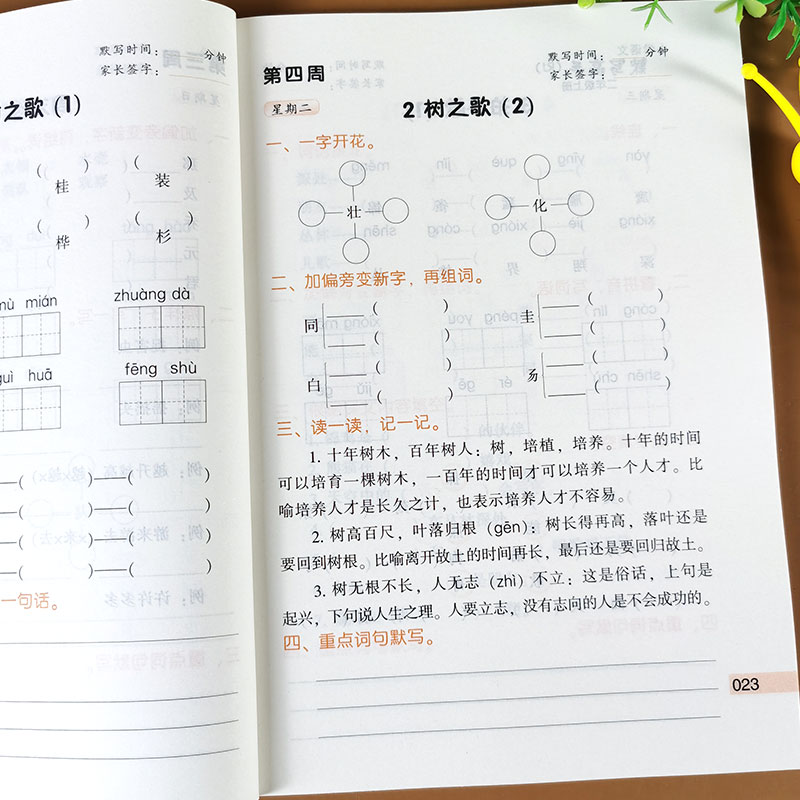 默写时间： 分钟
家长签字：
之歌（1）
（ ）（ ）
桂 装
（ ）（ ）
桦 杉
mù mián zhuàng dà
guì huā fēng shù
—（ ）—（ ）
—（ ）—（ ）
）—（ ）
）—（ ）
一句话。
第四周
默写时间： 分钟
家长签字：
星期二
2 树之歌（2）
一、一字开花。
壮 化
二、加偏旁变新字，再组词。
同 （ ） （ ） 圭 （ ） （ ）
白 （ ） （ ） 昜 （ ） （ ）
三、读一读，记一记。
1. 十年树木，百年树人：树，培植，培养。十年的时间
可以培育一棵树木，一百年的时间才可以培养一个人才。比
喻培养人才是长久之计，也表示培养人才不容易。
2. 树高百尺，叶落归根（gēn）：树长得再高，落叶还是
要回到树根。比喻离开故土的时间再长，最后还是要回归故土。
3. 树无根不长，人无志（zhì）不立：这是俗话，上句是
起兴，下句说人生之理。人要立志，没有志向的人是不会成功的。
四、重点词句默写。
023